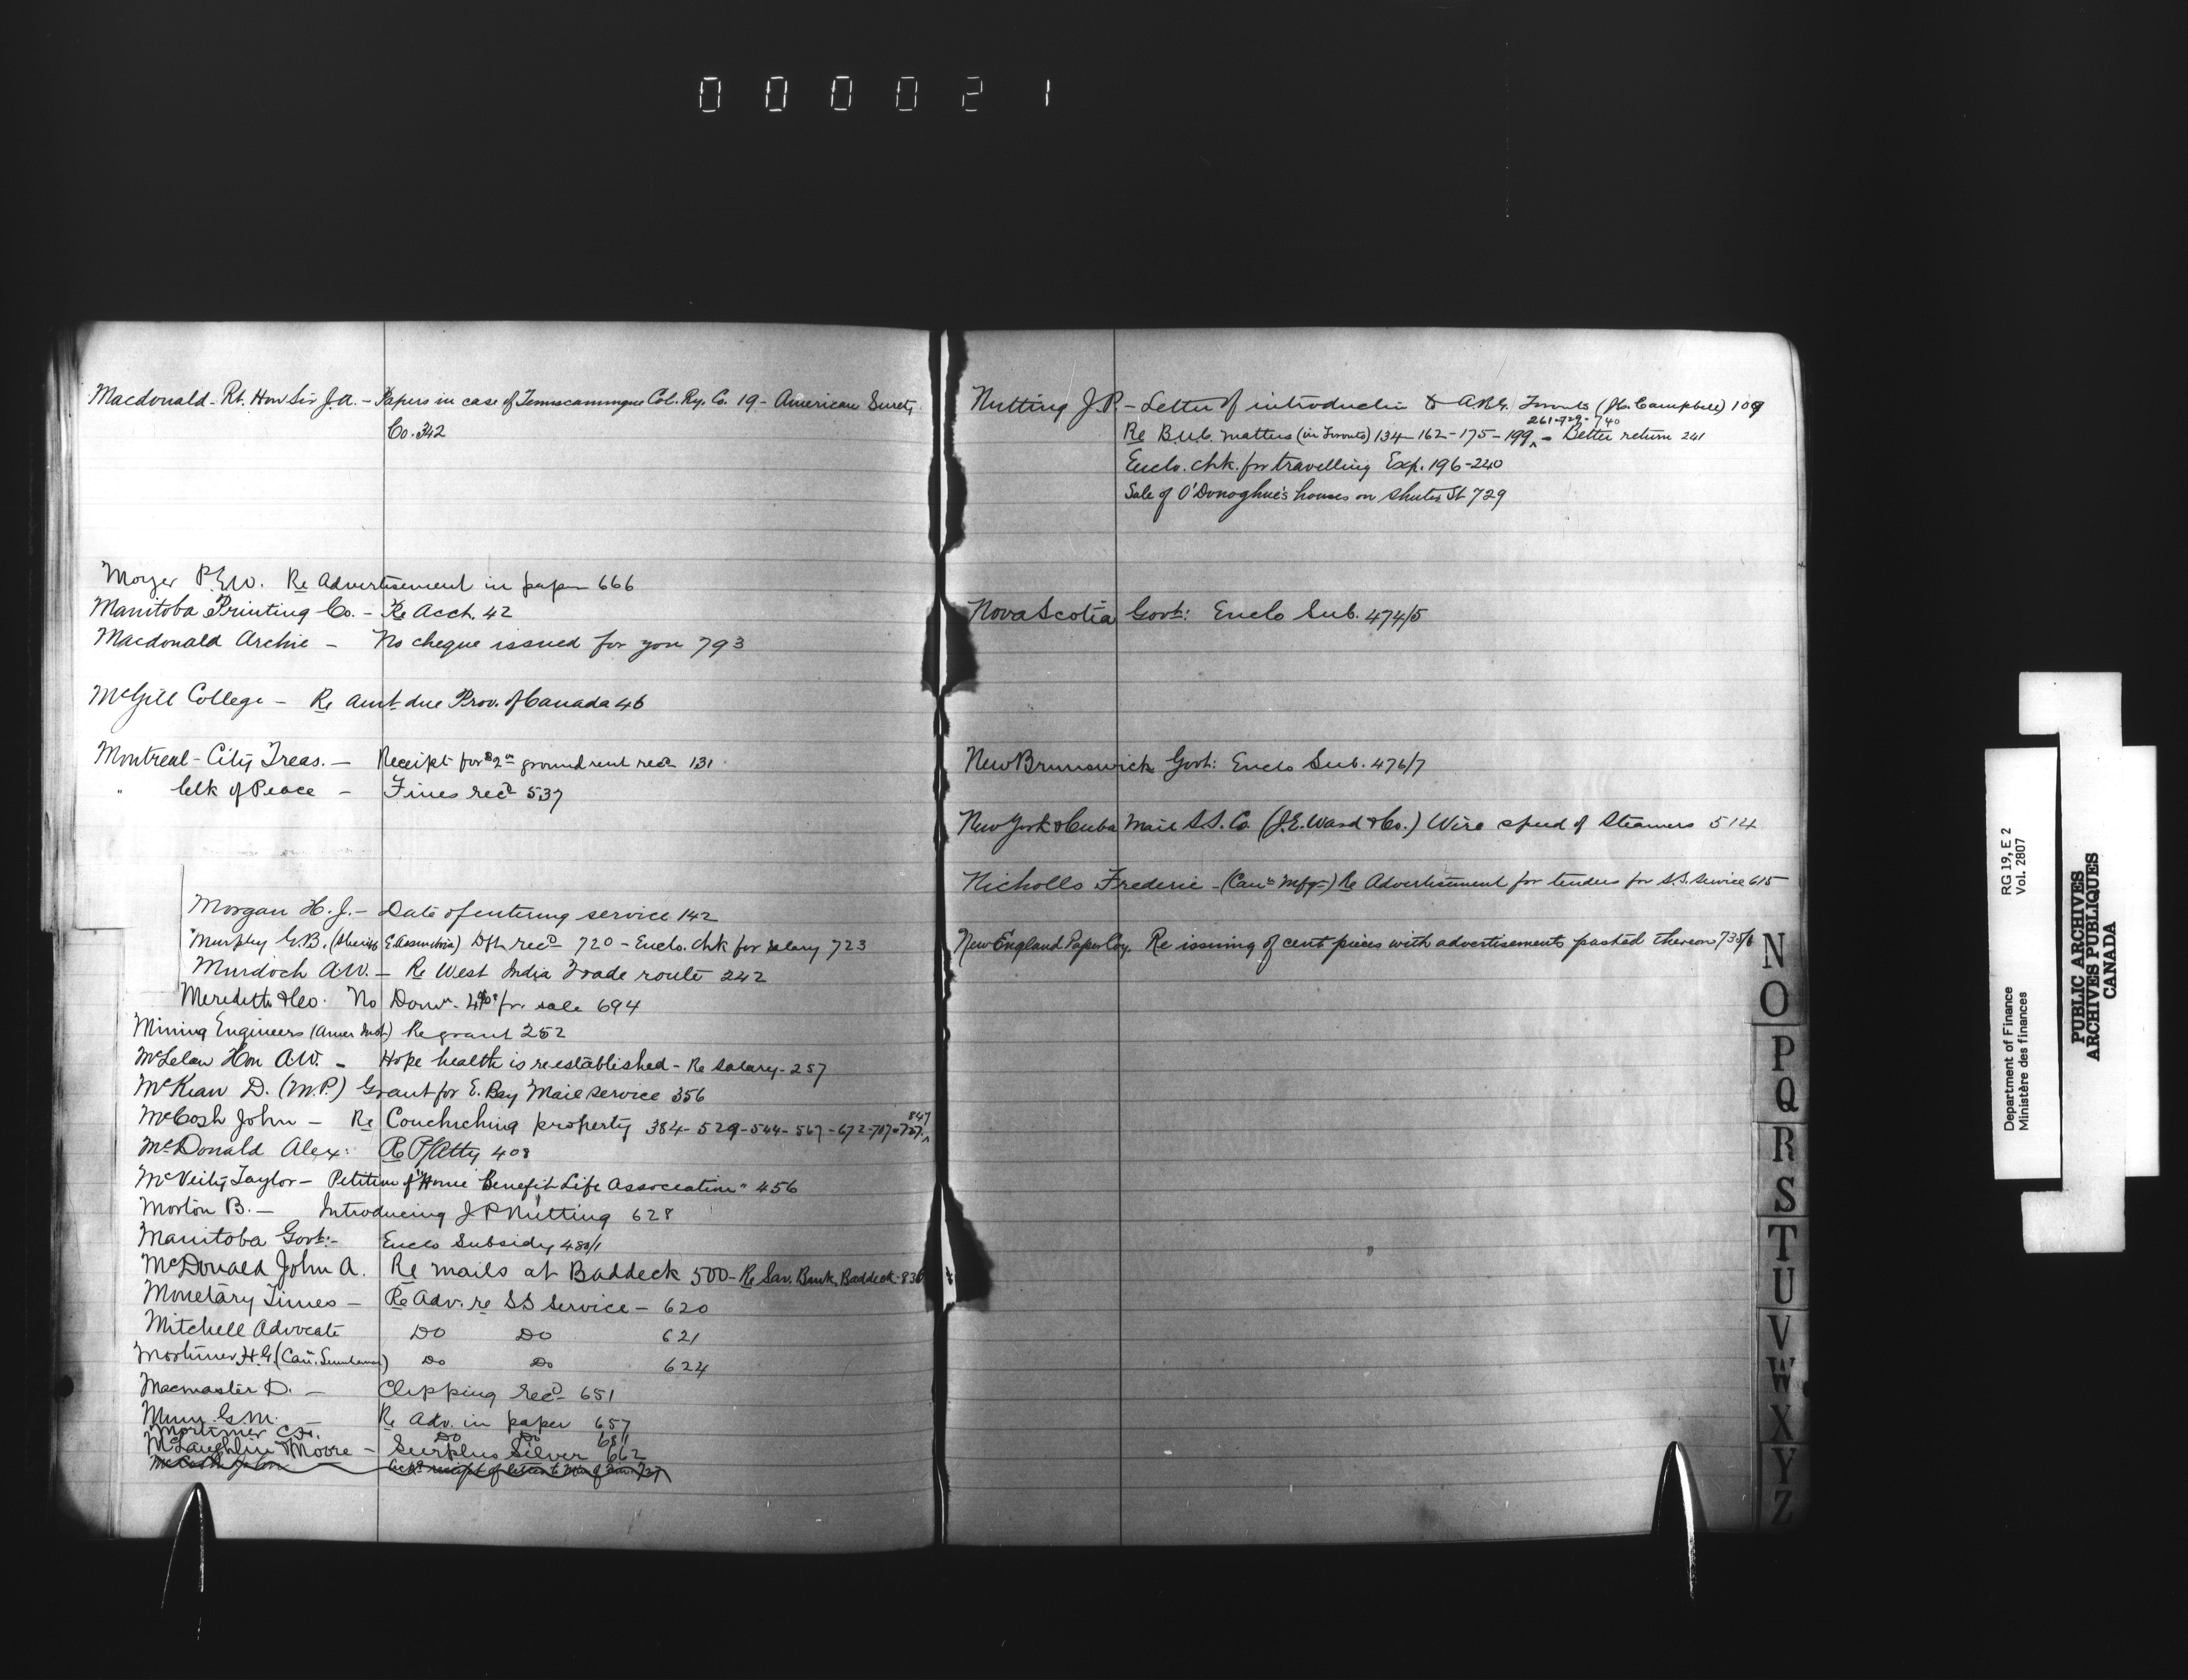 000021
Macdonald - Rt. Hon Sir J.A. - Papers in case of Temiscamingue Col. Ry. Co. 19 - American Surety
Co. 342
Moyer P.E.W. Re Advertisement in paper 666
Manitoba Printing Co. - Re Acct. 42
Macdonald Archie - No cheque issued for you 793
McGill College - Re Amt due Prov. of Canada 46
Montreal - City Treas. - Receipt for $2 ground rent recd 131
" Clk of Peace - Fines recd 537
Morgan H.J. - Date of entering service 142
Murphy G.B. (Sheriff E. Assiniboia) Dft recd 720 - Enclo. chk for salary 723
Murdoch A.W. - Re West India Trade route 242
Meredith & Co. No Domn. 4% for sale 694
Mining Engineers (Amer Inst.) Re grant 252
McLelan Hon A.W. - Hope health is reestablished - Re salary - 257
McKeaw D. (M.P.) Grant for E. Bay Mail service 356
McCosh John - Re Couchiching property 384 - 529 - 544 - 567 - 672 - 717 - 727 ^ 847
McDonald Alex: Re P/Atty 408
McVeity Taylor - Petition of "Home Benefit Life Association" 456
Morton B. - Introducing J P Nutting 628
Manitoba Govt: - Enclo Subsidy 480/1
McDonald John A. Re mails at Baddeck 500 - Re Sav. Bank, Baddeck - 836
Monetary Times - Re Adv. re SS Service - 620
Mitchell Advocate Do Do 621
Mortimer H.G. (Can. Lumberman) Do Do 624
Macmaster D. - Clipping recd 651
Munn G.M. - Re Adv. in paper 657
Mortimer C.H. Do Do 681
McLaughlin & Moore - Surplus Silver 662
McCosh John Ackg receipt of letter to 727
Nutting J.P. - Letter of introduction to A.R.G. Toronto (H. Campbell) 109
Re B.U.C. matters (in Toronto) 134 - 162 - 175 - 199 ^ 261-729-740 - Better return 241
Enclo. chk. for travelling Exp. 196-240
Sale of O'Donoghue's houses on Shuter St 729
Nova Scotia Govt: Enclo Sub. 474/5
New Brunswick Govt: Enclo Sub. 476/7
New York & Cuba Mail S.S. Co. (J.E. Ward & Co.) Wire speed of Steamers 514
Nicholls Frederic - (Can Mfgr) Re Advertisement for tenders for S.S. service 615
New England Paper Coy. Re issuing of cent pieces with advertisements pasted thereon 735/6
N
O
P
Q
R
S
T
U
V
W
X
Y
Z
Department of Finance RG 19, E 2
Ministère des finances Vol. 2807
PUBLIC ARCHIVES
ARCHIVES PUBLIQUES
CANADA